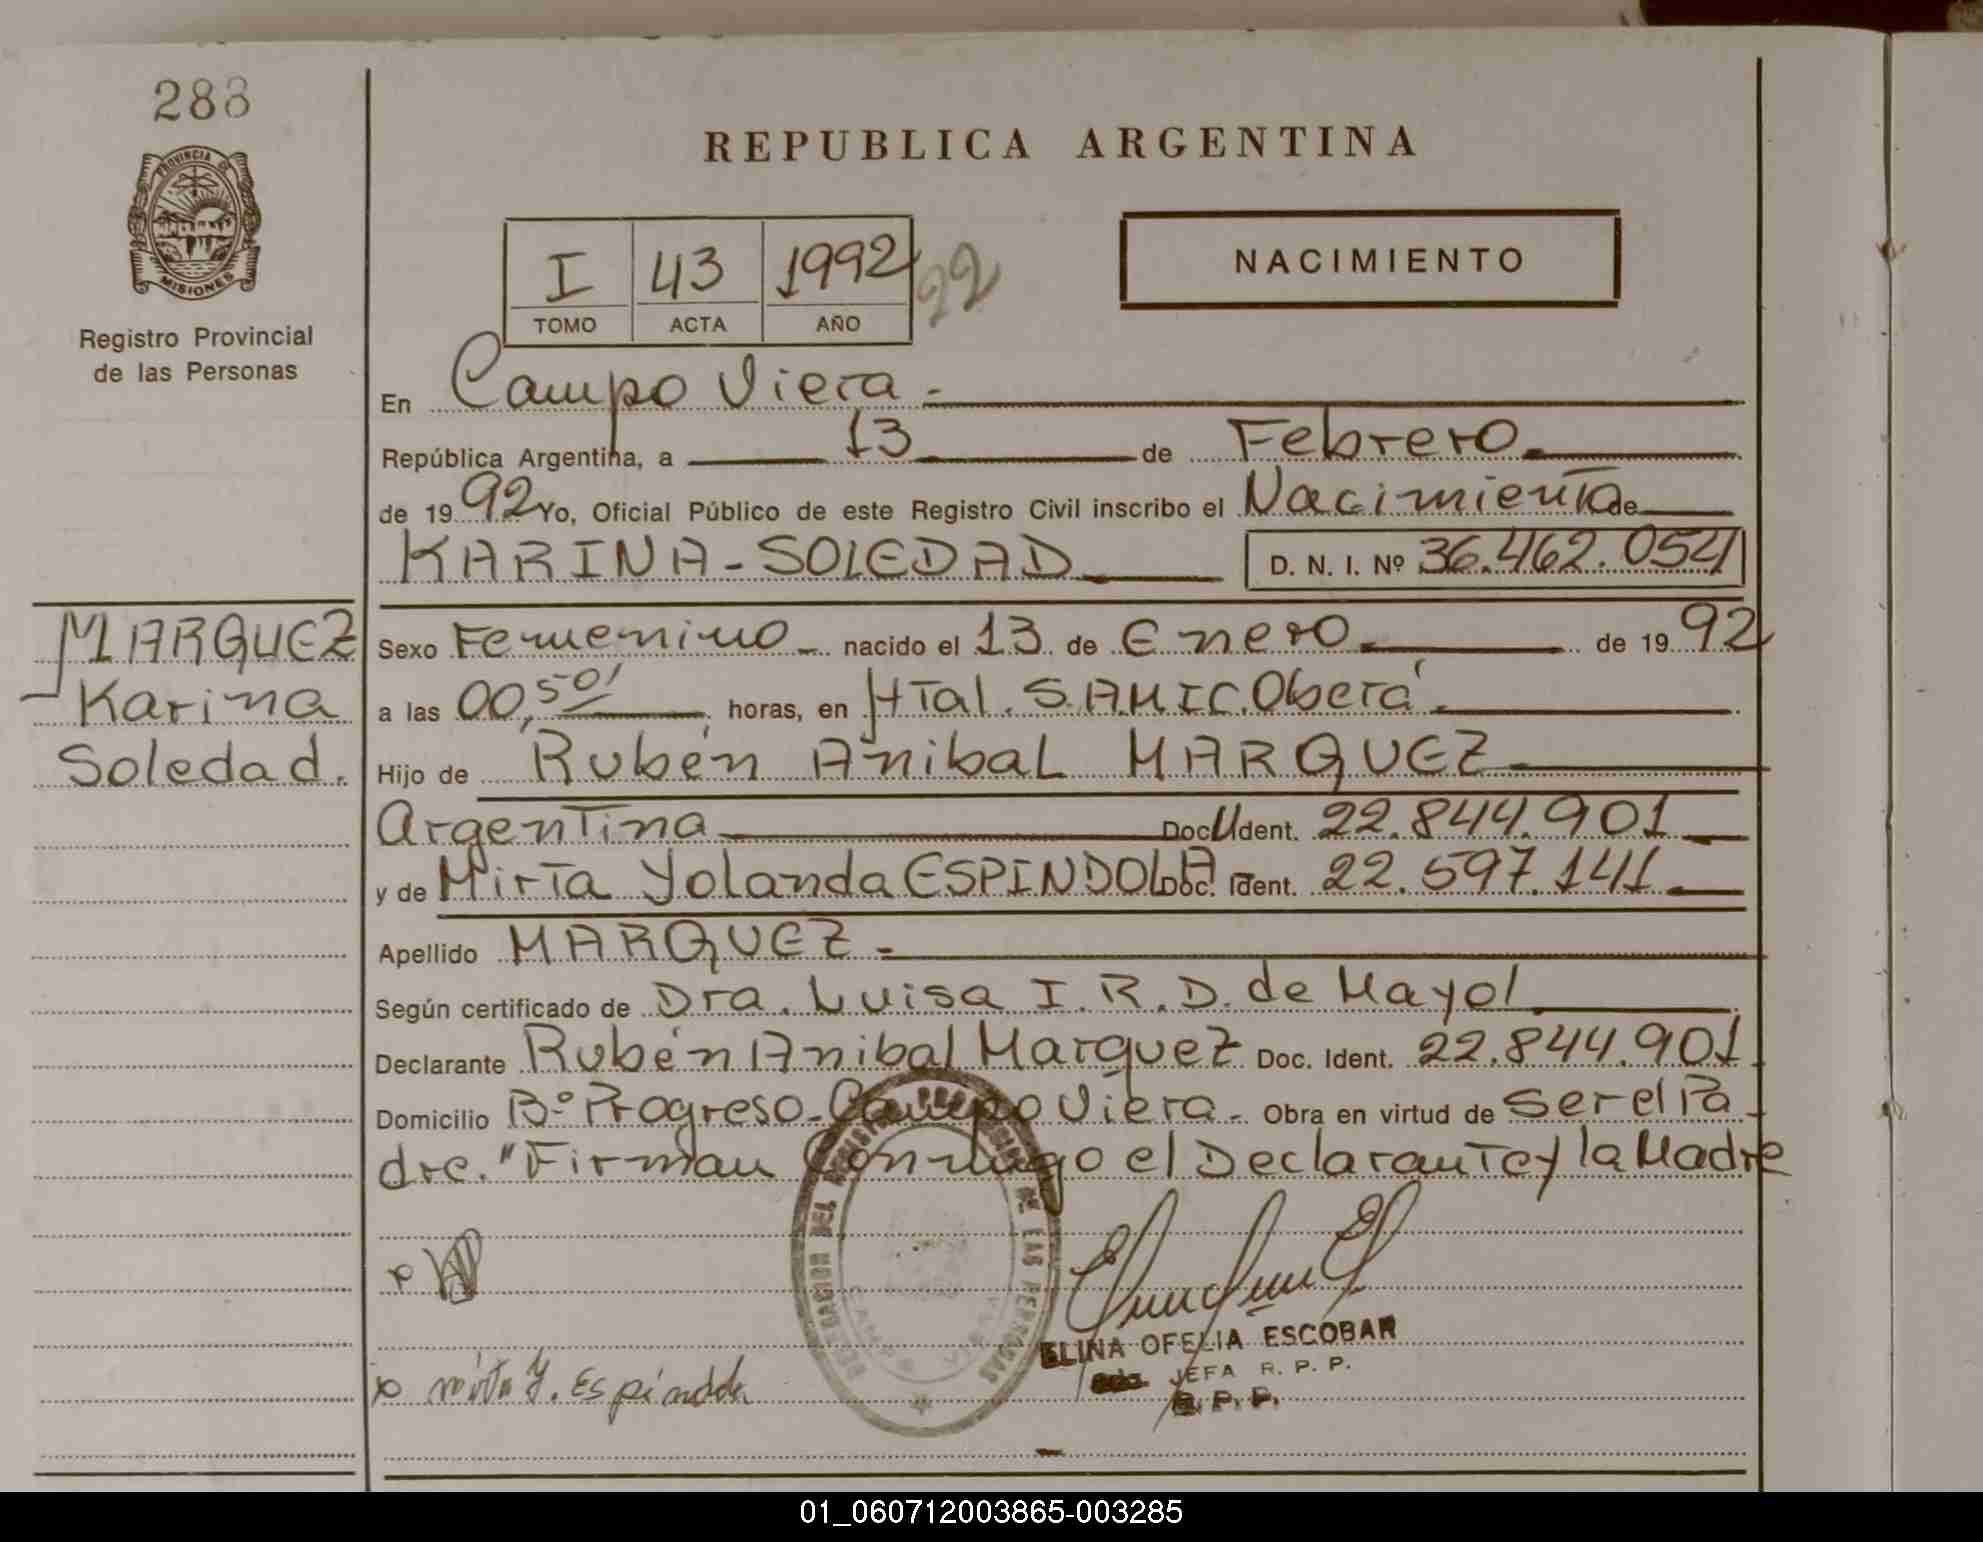 288
PROVINCIA DE
MISIONES
Registro Provincial
de las Personas
REPUBLICA ARGENTINA
I 43 1992 22
TOMO ACTA AÑO
NACIMIENTO
En Campo Viera.-
República Argentina, a 13 de Febrero
de 1992 Yo, Oficial Público de este Registro Civil inscribo el Nacimiento de
KARINA-SOLEDAD D. N. I. Nº 36.462.054
MARQUEZ
Karina
Soledad.
Sexo Femenino nacido el 13 de Enero de 1992
a las 00,50' horas, en Htal. S.A.M.I.C. Oberá.
Hijo de Rubén Anibal MARQUEZ
Argentina Doc. Ident. 22.844.901
y de Mirta Yolanda ESPINDOLA Doc. Ident. 22.597.141
Apellido MARQUEZ.-
Según certificado de Dra. Luisa I.R.D. de Mayol
Declarante Rubén Anibal Marquez Doc. Ident. 22.844.901
Domicilio Bº Progreso-Campo Viera.- Obra en virtud de ser el Pa-
dre. "Firman Conmigo el Declarante y la Madre
DELEGACION DEL REGISTRO PROVINCIAL DE LAS PERSONAS
CAMPO VIERA
ELINA OFELIA ESCOBAR
JEFA R. P. P.
R. P. P.
Mirta Y. Espindola
01_060712003865-003285